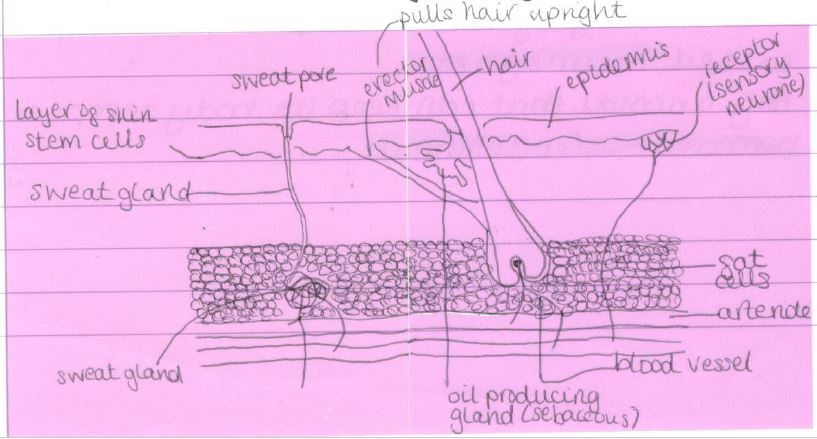 pulls hair upright
sweat pore
erector
muscle
hair
epidermis
receptor
(sensory
neurone)
layer of skin
stem cells
sweat gland
sat
cells
arteriole
sweat gland
blood vessel
oil producing
gland (sebaceous)